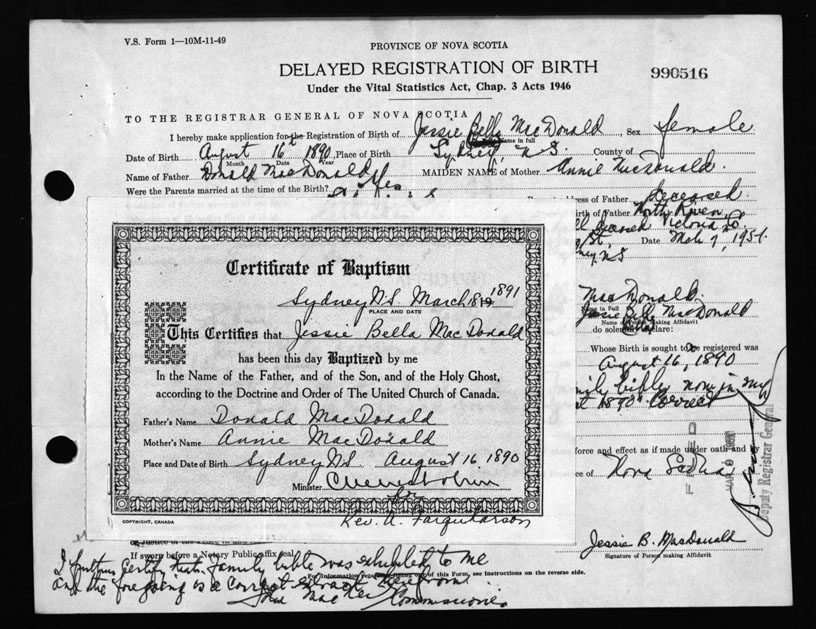 V.S. Form 1—10M-11-49
PROVINCE OF NOVA SCOTIA
DELAYED REGISTRATION OF BIRTH
990516
Under the Vital Statistics Act, Chap. 3 Acts 1946
TO THE REGISTRAR GENERAL OF NOVA SCOTIA
I hereby make application for the Registration of Birth of Jessie Bella MacDonald Sex female
Name in full
Date of Birth August 16th 1890 Place of Birth Sydney, N.S. County of
Month Date Year
Name of Father Donald MacDonald MAIDEN NAME of Mother Annie MacDonald
Were the Parents married at the time of the Birth? Yes
Address of Father deceased
Birth of Father North River
deceased Victoria Co
St. Date Mch 9, 1951
N.S
Certificate of Baptism
Sydney N.S. March 18 1891
PLACE AND DATE
This Certifies that Jessie Bella MacDonald
has been this day Baptized by me
In the Name of the Father, and of the Son, and of the Holy Ghost,
according to the Doctrine and Order of The United Church of Canada.
Father's Name Donald MacDonald
Mother's Name Annie MacDonald
Place and Date of Birth Sydney N.S. August 16 1890
Minister
for
Rev. A. Farquharson
COPYRIGHT, CANADA
MacDonald
Name in Full
Jessie Bella MacDonald
Name of Person Making Affidavit
do solemnly declare:
Whose Birth is sought to be registered was
August 16, 1890
family bible now in my
1890" Correct
force and effect as if made under oath and
Nova Scotia
FILED
MAR 9 1951
Deputy Registrar General
Jessie B. MacDonald
Signature of Person making Affidavit
If sworn before a Notary Public affix seal
For information regarding filling out of this Form, see instructions on the reverse side.
I further certify that family bible was exhibited to me
and the foregoing is a correct extract therefrom
Commissioner